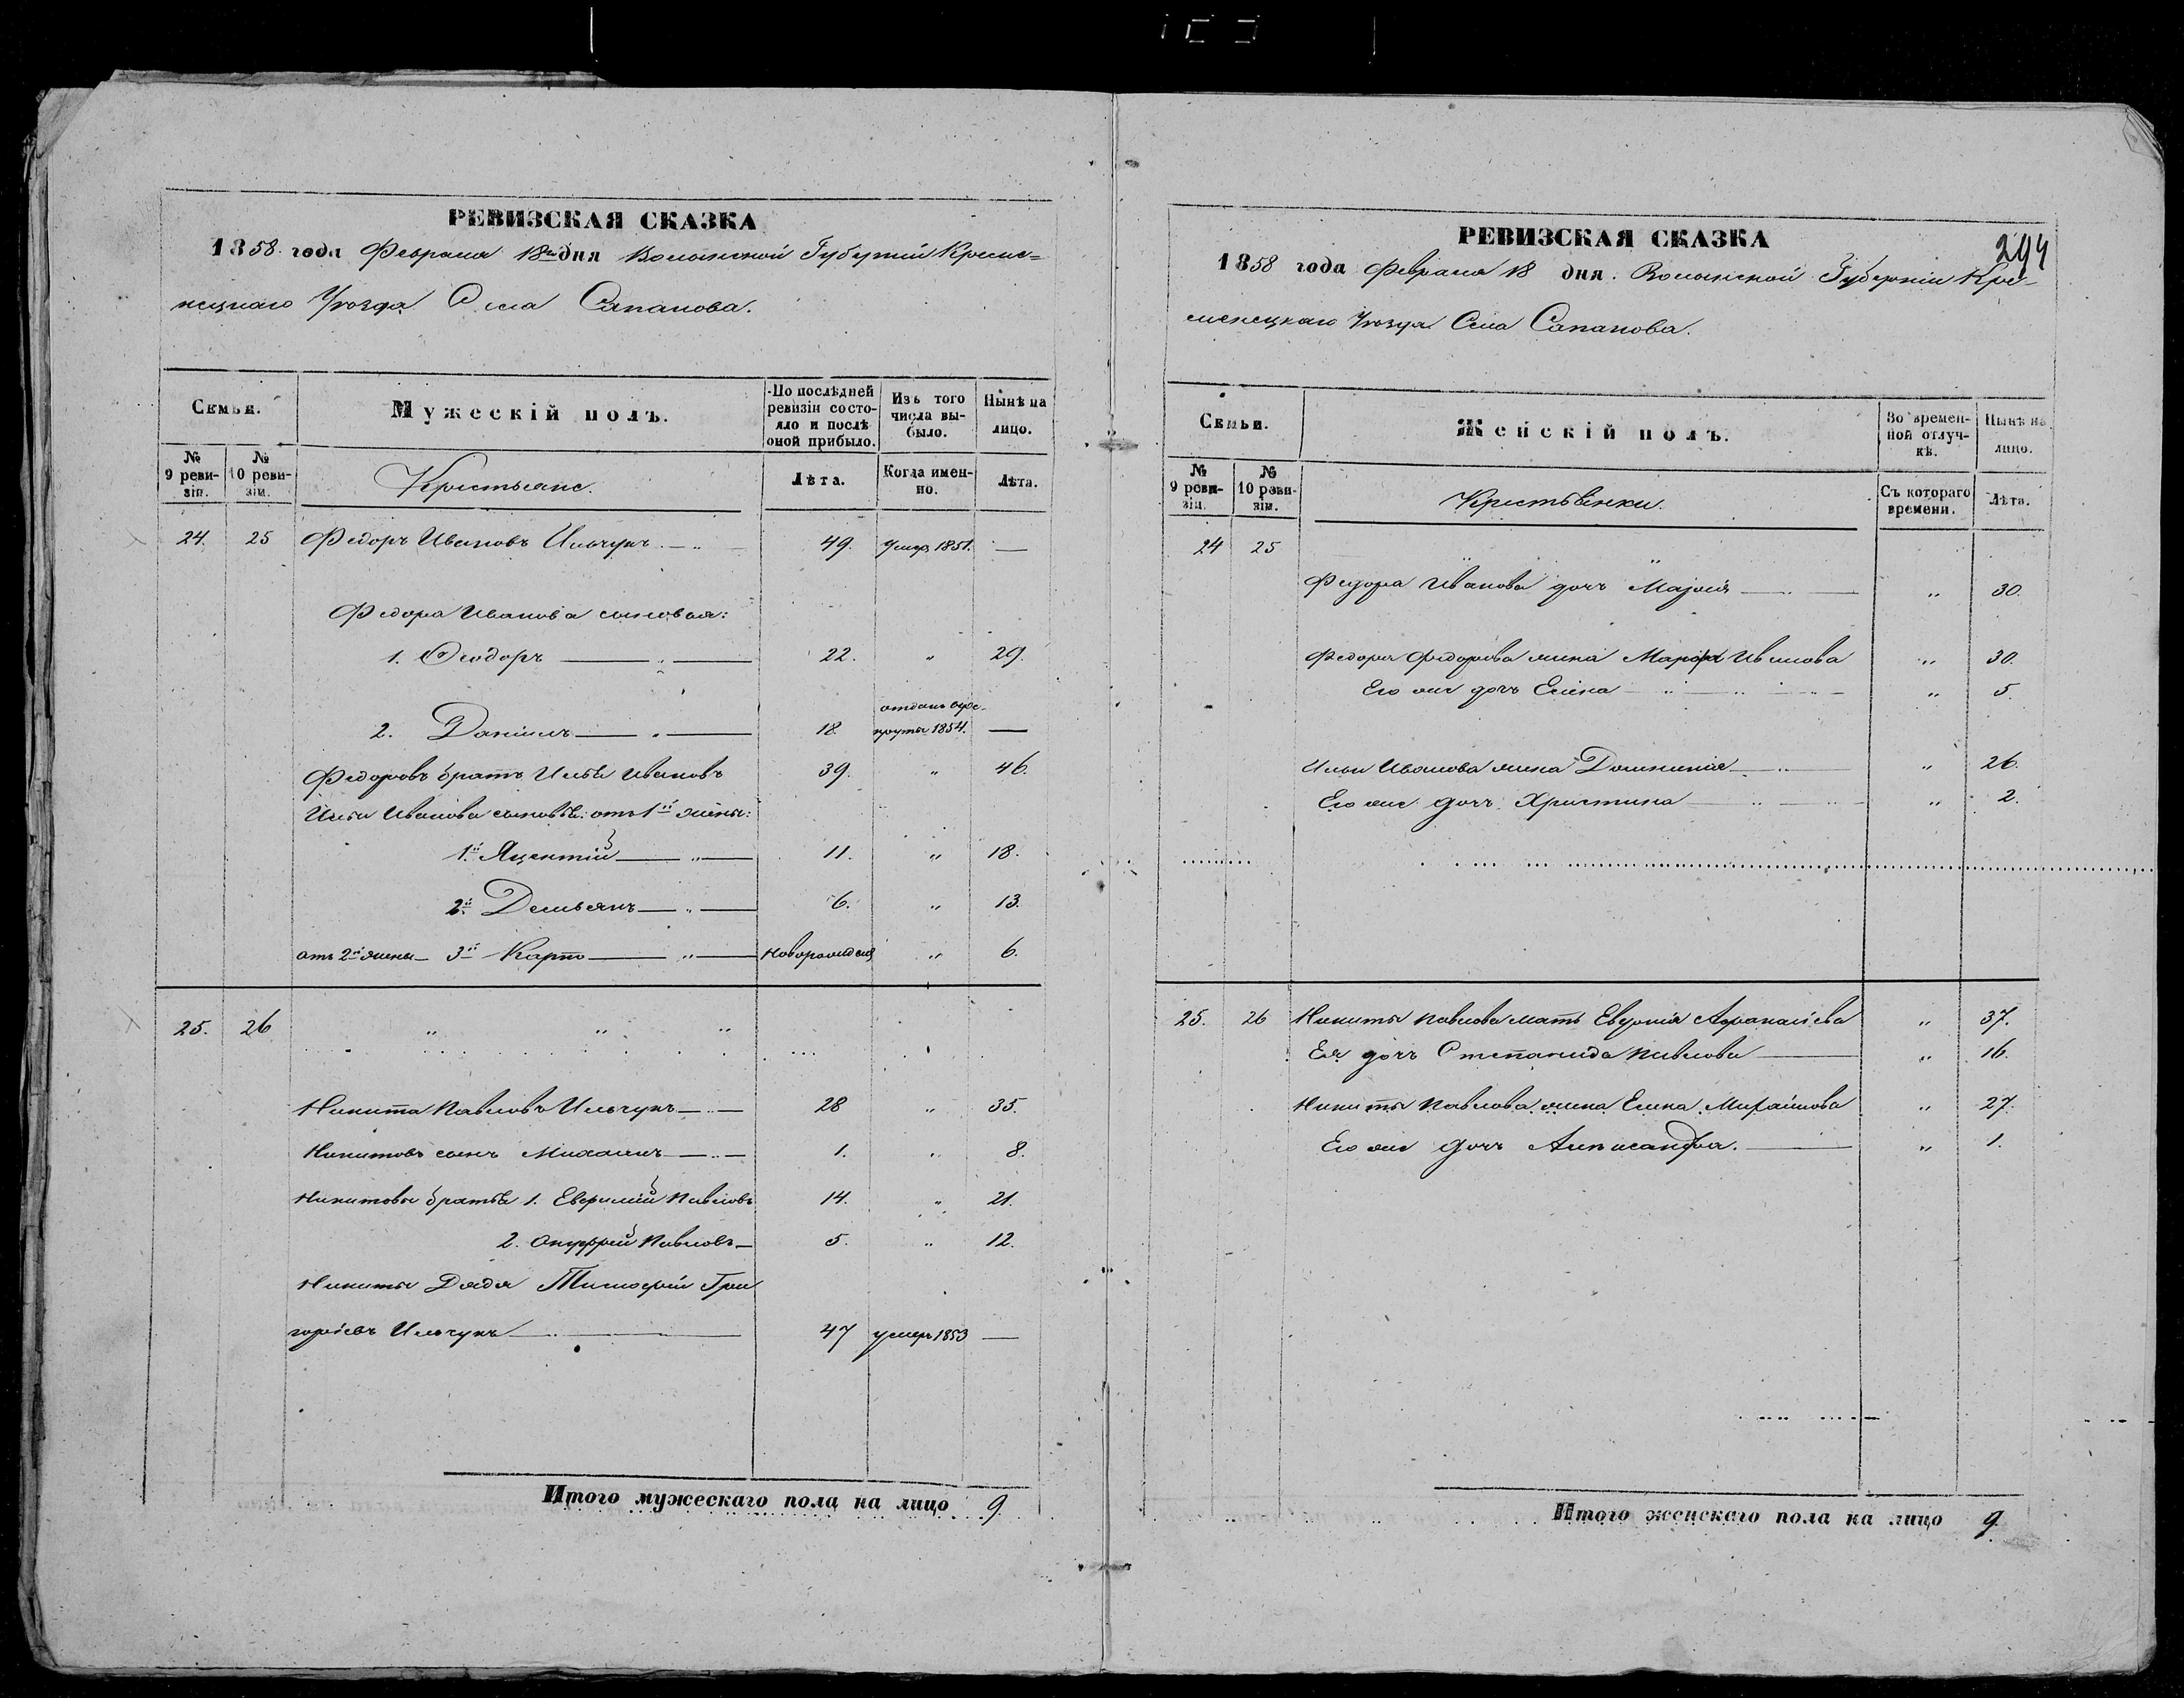 РЕВИЗСКАЯ СКАЗКА
1858 года Февраля 18го дня Волынской Губерніи Креме=
нецкаго Уѣзда Села Сапанова.
Семьи.
Мужескій полъ.
По послѣдней ревизіи состояло и послѣ оной прибыло.
Изъ того числа выбыло.
Нынѣ на лицо.
№ 9 ревизіи.
№ 10 ревизіи.
Крестьяне.
Лѣта.
Когда именно.
Лѣта.
24. 25 Федоръ Ивановъ Ильчукъ 49. умер 1851. —
Федора Иванова сыновья:
1. Феодоръ 22. " 29.
отданъ въ ре-
2. Даніилъ 18. круты 1854. —
Федоровъ братъ Илья Ивановъ 39. " 46.
Ильи Иванова сыновья: отъ 1й жены:
1й Яцентій 11. " 18.
2й Демьянъ 6. " 13.
отъ 2й жены 3й Карпъ новорожден " 6.
25. 26 " " "
Никита Павловъ Ильчукъ 28 " 35.
Никитовъ сынъ Михаилъ 1. " 8.
Никитовы братья 1. Евфимій Павловъ 14. " 21.
2. Онуфрій Павловъ 5. " 12.
Никиты Дядя Тимофей Гри
горіевъ Ильчукъ 47 умеръ 1853 —
Итого мужескаго пола на лицо 9.
РЕВИЗСКАЯ СКАЗКА
294
1858 года Февраля 18 дня. Волынской Губерніи Кре-
менецкаго Уѣзда Села Сапанова.
Семьи.
Женскій полъ.
Во временной отлучкѣ.
Нынѣ на лицо.
№ 9 ревизіи.
№ 10 ревизіи.
Крестьянки.
Съ котораго времени.
Лѣта.
24 25 " "
Федора Иванова дочь Марія " 30.
Федора Федорова жена Марфа Иванова " 30.
Его же дочь Елена " 5.
Ильи Иванова жена Домникія " 26.
Его же дочь Христина " 2.
25. 26 Никиты Павлова мать Евдокія Афанасіева " 37.
Ея дочь Степанида Павлова " 16.
Никиты Павлова жена Елена Михайлова " 27.
Его же дочь Александра. " 1.
Итого женскаго пола на лицо 9.